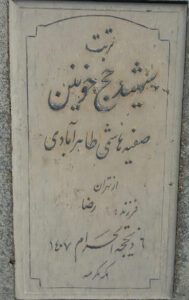 تربت
شهید حج خونین
صفیه هاشمی طاهرآبادی
از تهران
فرزند: رضا
۶ ذیحجه الحرام ۱۴۰۷
مکه مکرمه